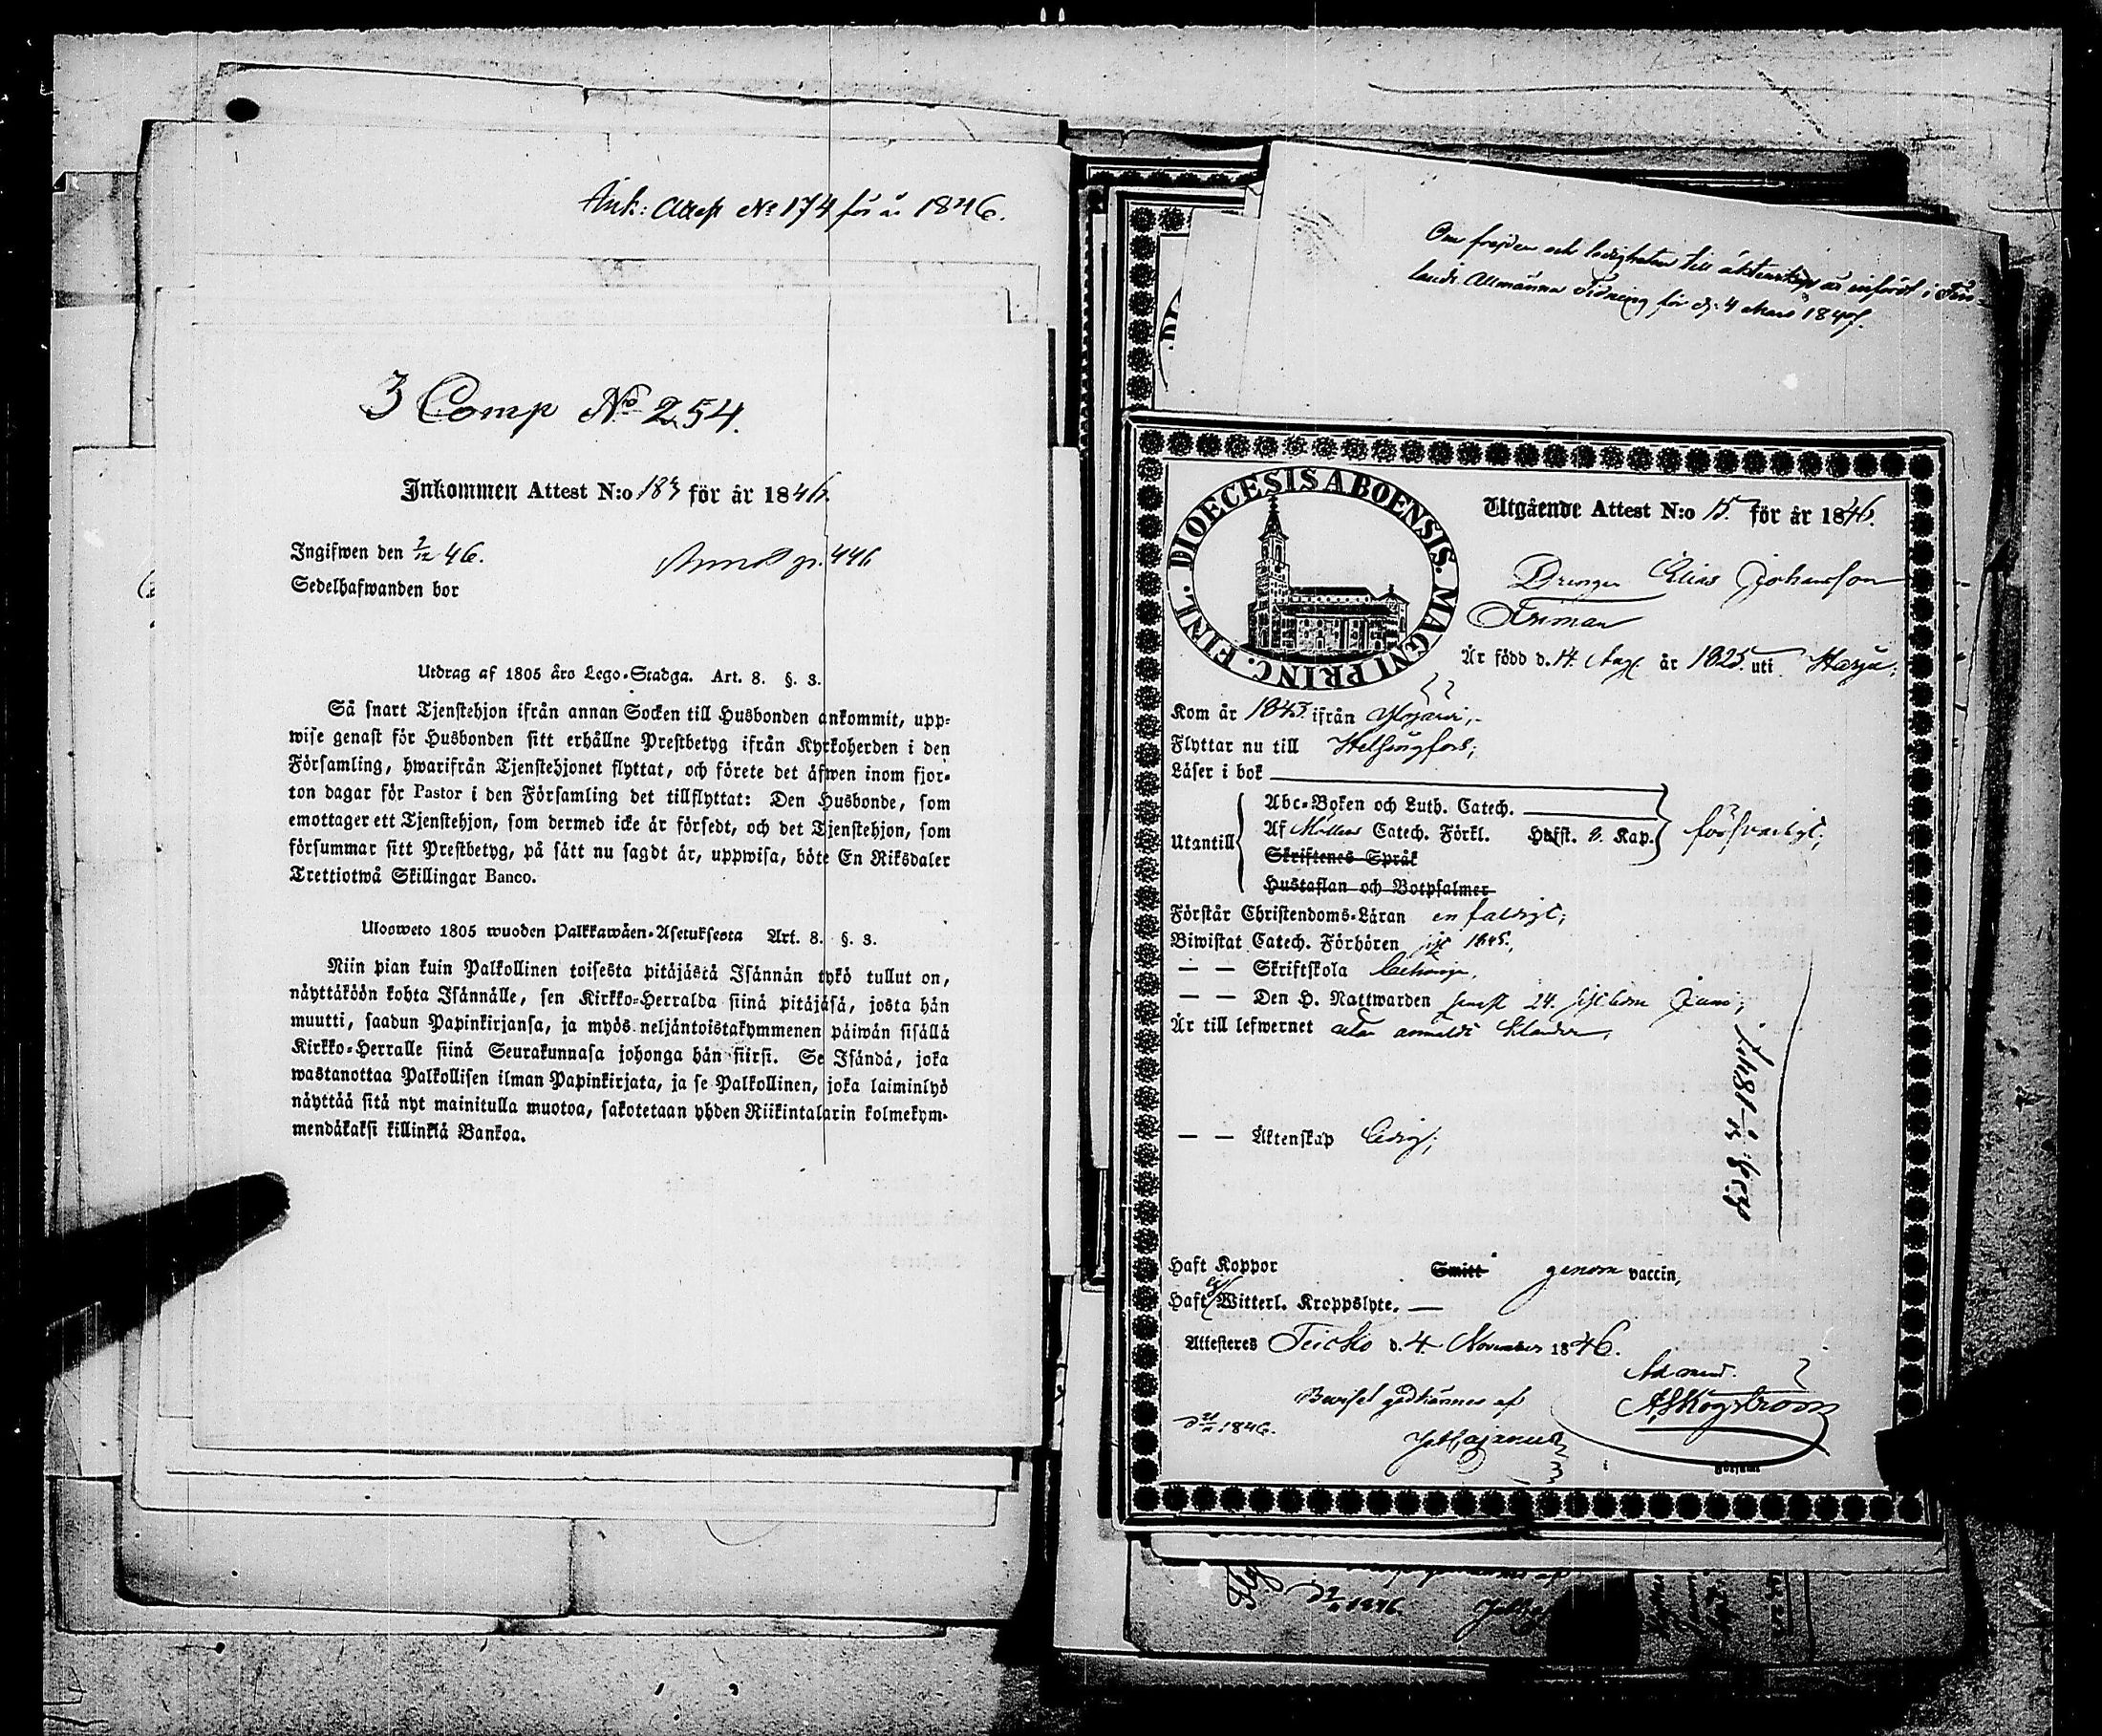 Ank: Attest No 174 för år 1846.
3 Comp No 254.
Inkommen Attest N:o 183 för år 1846
Ingifwen den 2/12 46.
446
Sedelhafwanden bor
Utdrag af 1805 års Lego-Stadga. Art. 8. §. 3.
Så snart Tjenstehjon ifrån annan Socken till Husbonden ankommit, upp-
wise genast för Husbonden sitt erhållne Prestbetyg ifrån Kyrkoherden i den
Församling, hwarifrån Tjenstehjonet flyttat, och förete det äfwen inom fjor-
ton dagar för Pastor i den Församling det tillflyttat: Den Husbonde, som
emottager ett Tjenstehjon, som dermed icke är försedt, och det Tjenstehjon, som
försummar sitt Prestbetyg, på sätt nu sagdt är, uppwisa, böte En Riksdaler
Trettiotwå Skillingar Banco.
Ulosweto 1805 wuoden Palkkawäen-Asetuksesta Art. 8. §. 3.
Niin pian kuin Palkollinen toisesta pitäjästä Isännän tykö tullut on,
näyttäköön kohta Isännälle, sen Kirkko-Herralda siinä pitäjäsä, josta hän
muutti, saadun Papinkirjansa, ja myös neljäntoistakymmenen päiwän sisällä
Kirkko-Herralle siinä Seurakunnasa johonga hän siirsi. Se Isändä, joka
wastanottaa Palkollisen ilman Papinkirjata, ja se Palkollinen, joka laiminlyö
näyttää sitä nyt mainitulla muotoa, sakotetaan yhden Riikintalarin kolmekym-
mendäkaksi killinkiä Bankoa.
Om frejden och ledigheten till äktenskap är infördt i Fin-
lands Allmänna Tidning för d. 4 Mars 1847.
DIOECESIS ABOENSIS. MAGNI PRINC. FINL.
Utgående Attest N:o 15. för år 1846.
Drengen Elias Johansson
Friman
Är född d. 14. Aug. år 1825. uti Harju;
Kom år 1843. ifrån Ylöjärvi;
Flyttar nu till Helsingfors;
Läser i bok
Abc-Boken och Luth. Catech.
Utantill Af Möllers Catech. Förkl. Hufst. 2. Kap. försvarligt;
Skriftenes Språk
Hustaflan och Botpsalmer
Förstår Christendoms-Läran enfaldigt;
Biwistat Catech. Förhören 1845.;
— — Skriftskola
— — Den H. Nattwarden senast 24. sistledne Juni;
Är till lefwernet utan anmäldt klander,
— — Äktenskap ledig;
Haft Koppor Smitt genom vaccin,
Haft ej Witterl. Kroppslyte. —
Attesteras Teisko d. 4. November 1846.
Beviset godkännes af
1846.
A Skogström